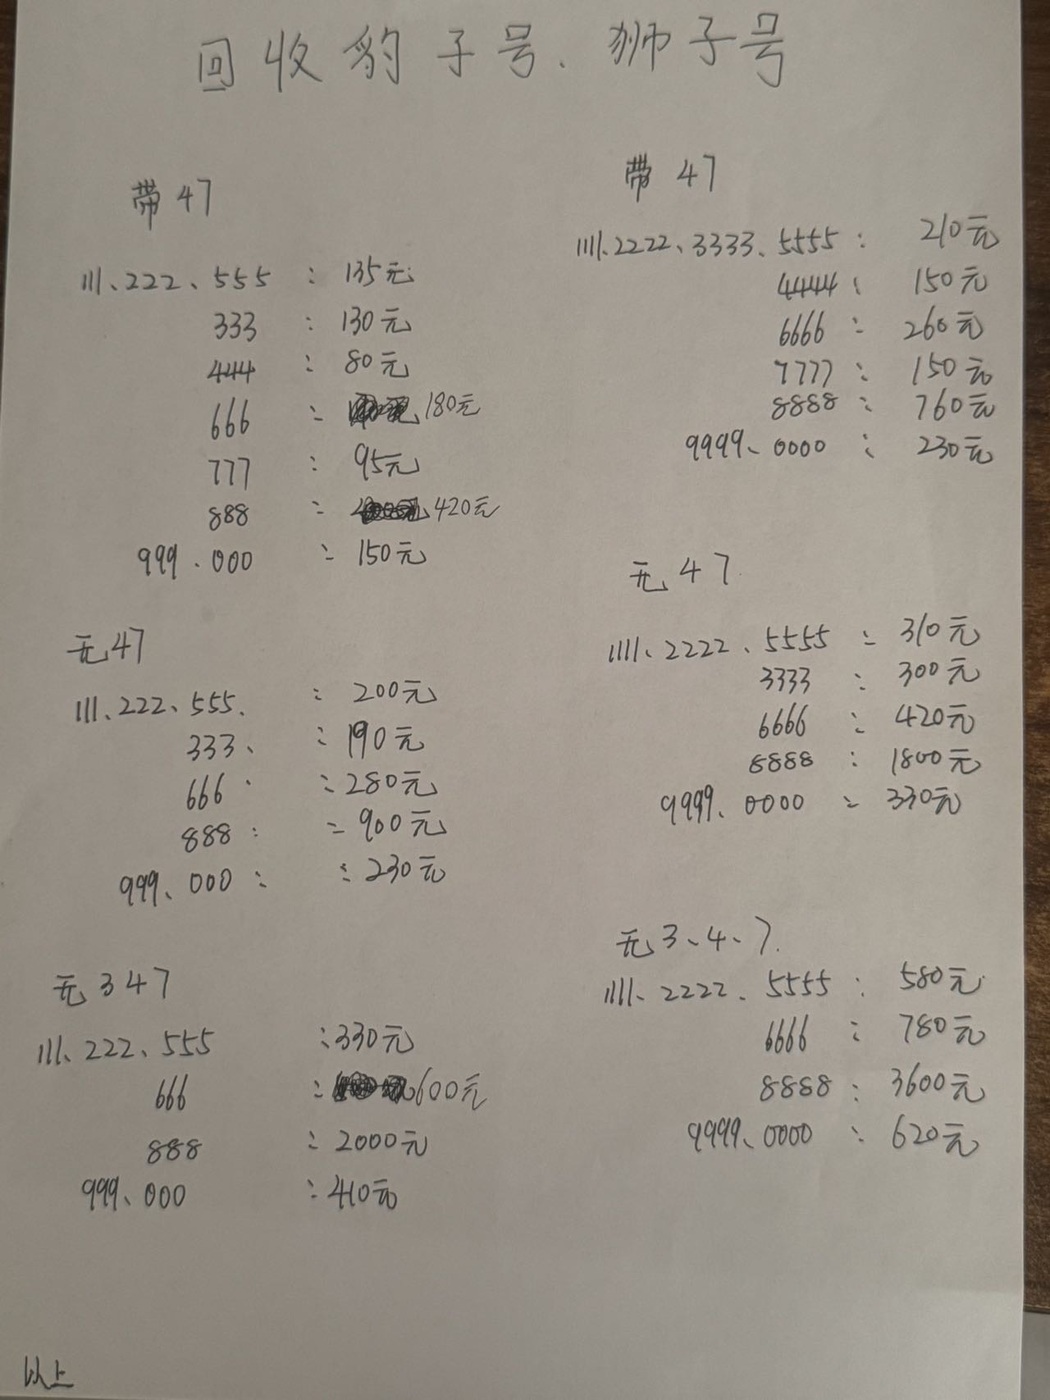 回收豹子号、狮子号
带47
111、222、555 : 135元
333 : 130元
444 : 80元
666 : 180元
777 : 95元
888 : 420元
999.000 : 150元
无47
111、222、555. : 200元
333、 : 190元
666 : 280元
888 : 900元
999、000 : 230元
无347
111、222、555 :330元
666 :600元
888 : 2000元
999、000 :410元
带47
1111、2222、3333、5555 : 210元
4444 : 150元
6666 : 260元
7777 : 150元
8888 : 760元
9999、0000 : 230元
无47
1111、2222、5555 : 310元
3333 : 300元
6666 : 420元
8888 : 1800元
9999、0000 : 330元
无3、4、7.
1111、2222、5555 : 580元
6666 : 780元
8888 : 3600元
9999、0000 : 620元
以上